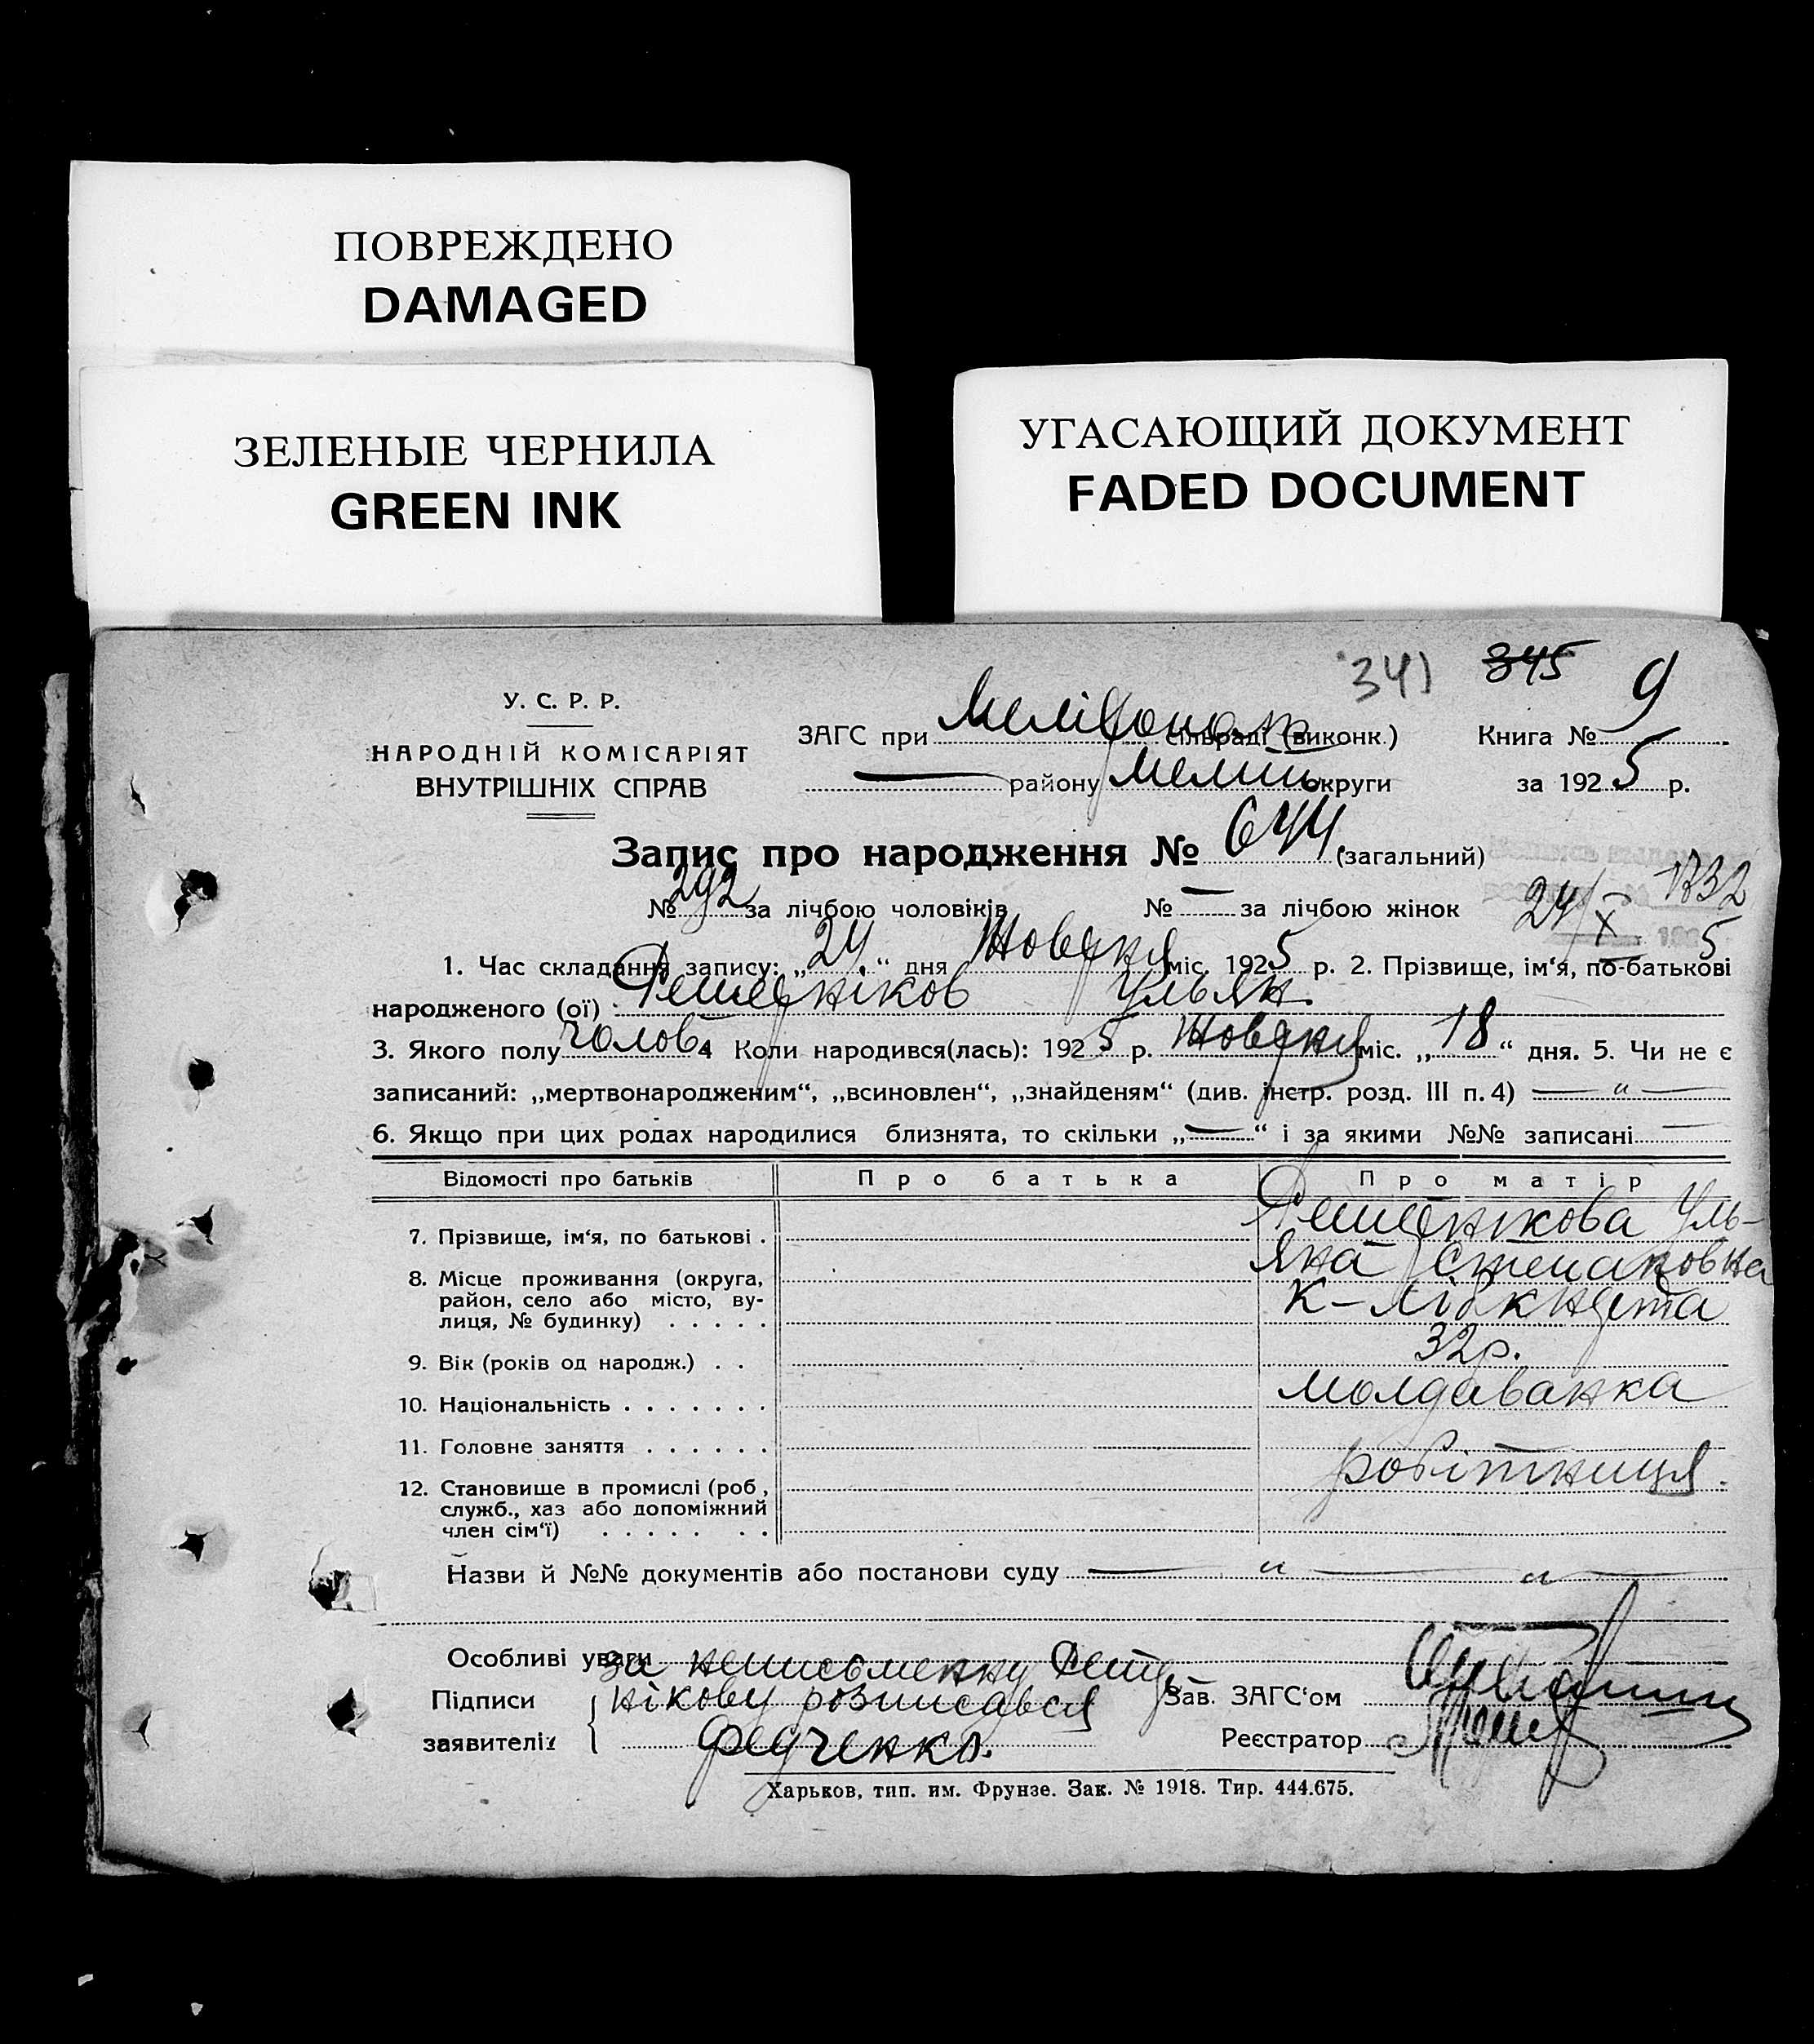 ПОВРЕЖДЕНО
DAMAGED
ЗЕЛЕНЫЕ ЧЕРНИЛА
GREEN INK
УГАСАЮЩИЙ ДОКУМЕНТ
FADED DOCUMENT
341 345 9
У. С. Р. Р.
НАРОДНІЙ КОМІСАРІЯТ
ВНУТРІШНІХ СПРАВ
ЗАГС при сільраді (виконк.) Книга №
— району Мелит. округи за 1925 р.
Запис про народження № 644 (загальний)
№ 292 за лічбою чоловіків № — за лічбою жінок
24/X 1732
5
1. Час складання запису: „24“ дня Жовтня міс. 1925 р. 2. Прізвище, ім‘я, по-батькові
народженого (ої) Решетніков Ульян.
3. Якого полу чолов. 4 Коли народився(лась): 1925 р. Жовтня міс. „18“ дня. 5. Чи не є
записаний: „мертвонародженим“, „всиновлен“, „знайденям“ (див. інстр. розд. III п. 4) — " —
6. Якщо при цих родах народилися близнята, то скільки „—“ і за якими №№ записані —
Відомості про батьків Про батька Про матір
7. Прізвище, ім‘я, по батькові . Решетнікова Уль-
яна Степановна
8. Місце проживання (округа,
район, село або місто, ву-
лиця, № будинку) . . . . . К-Лібкнехта
9. Вік (років од народж.) . . 32 р.
10. Національність . . . . . . . молдаванка
11. Головне заняття . . . . . .
12. Становище в промислі (роб., робітниця.
служб., хаз або допоміжний
член сім‘ї) . . . . . . .
Назви й №№ документів або постанови суду — " — " —
Особливі уваги за неписьменну Решет-
Підписи нікову розписався Зав. ЗАГС‘ом
заявителів Федченко. Реєстратор
Харьков, тип. им. Фрунзе. Зак. № 1918. Тир. 444.675.